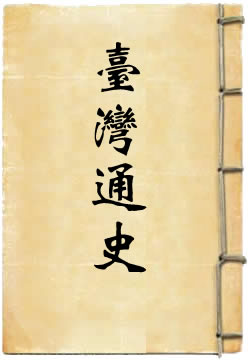 臺灣通史